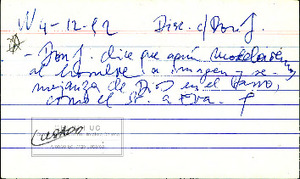 W 4-12-82 Disc. c/Don J.
- Don J. dice que aquí modelaron
al hombre a imagen y se-
mejanza de Dios en el barro,
como el a Eva.